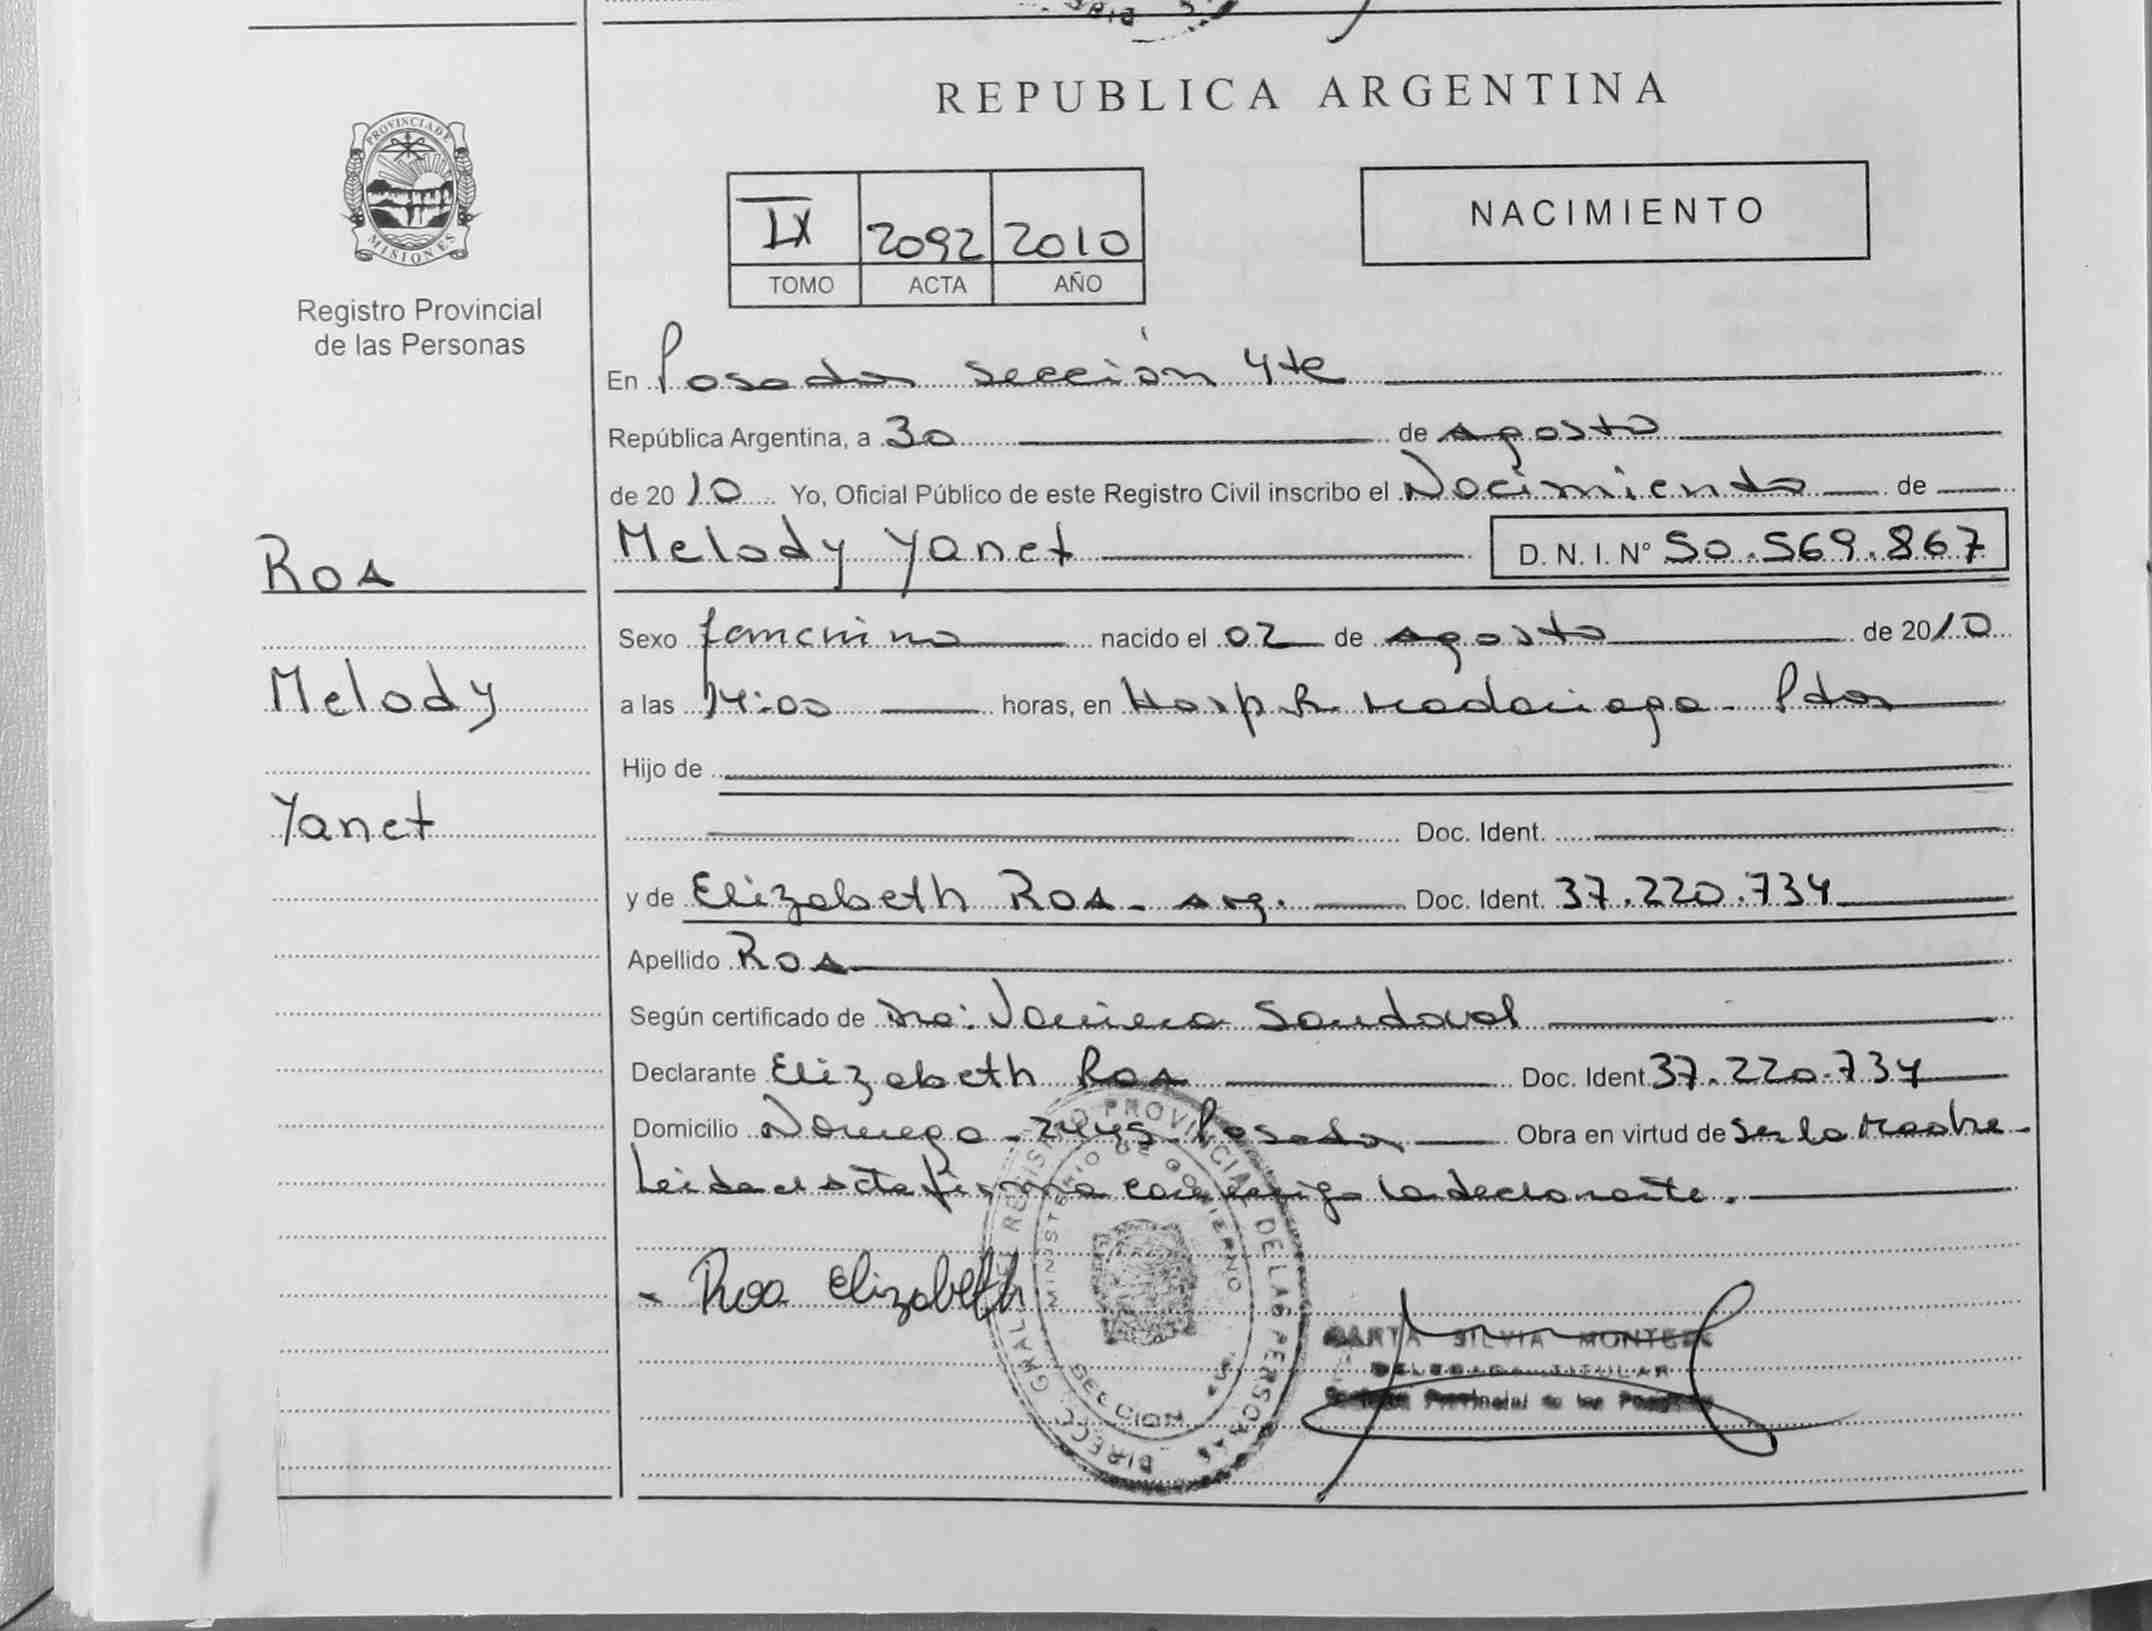 REPUBLICA ARGENTINA
PROVINCIA DE
MISIONES
Registro Provincial
de las Personas
IX 2092 2010
TOMO ACTA AÑO
NACIMIENTO
En Posadas sección 4ta
República Argentina, a 30 de agosto
de 2010 Yo, Oficial Público de este Registro Civil inscribo el Nacimiento de
Roa
Melody Yanet D. N. I. Nº 50.569.867
Sexo femenino nacido el 02 de agosto de 2010
Melody
a las 14:00 horas, en Hosp. R. Madariaga - Pdas
Hijo de
Yanet
Doc. Ident.
y de Elizabeth Roa - arg. Doc. Ident. 37.220.734
Apellido Roa
Según certificado de Dra: Sandoval
Declarante Elizabeth Roa Doc. Ident 37.220.734
Domicilio Noruega - 2445 - Posadas Obra en virtud de Ser la Madre -
Leida el acta firma conmigo la declarante.
- Roa Elizabeth
DIRECC. GRAL. DEL REGISTRO PROVINCIAL DE LAS PERSONAS
MINISTERIO DE GOBIERNO
SECCION
SILVIA
DELEGADA TITULAR
Provincial de las